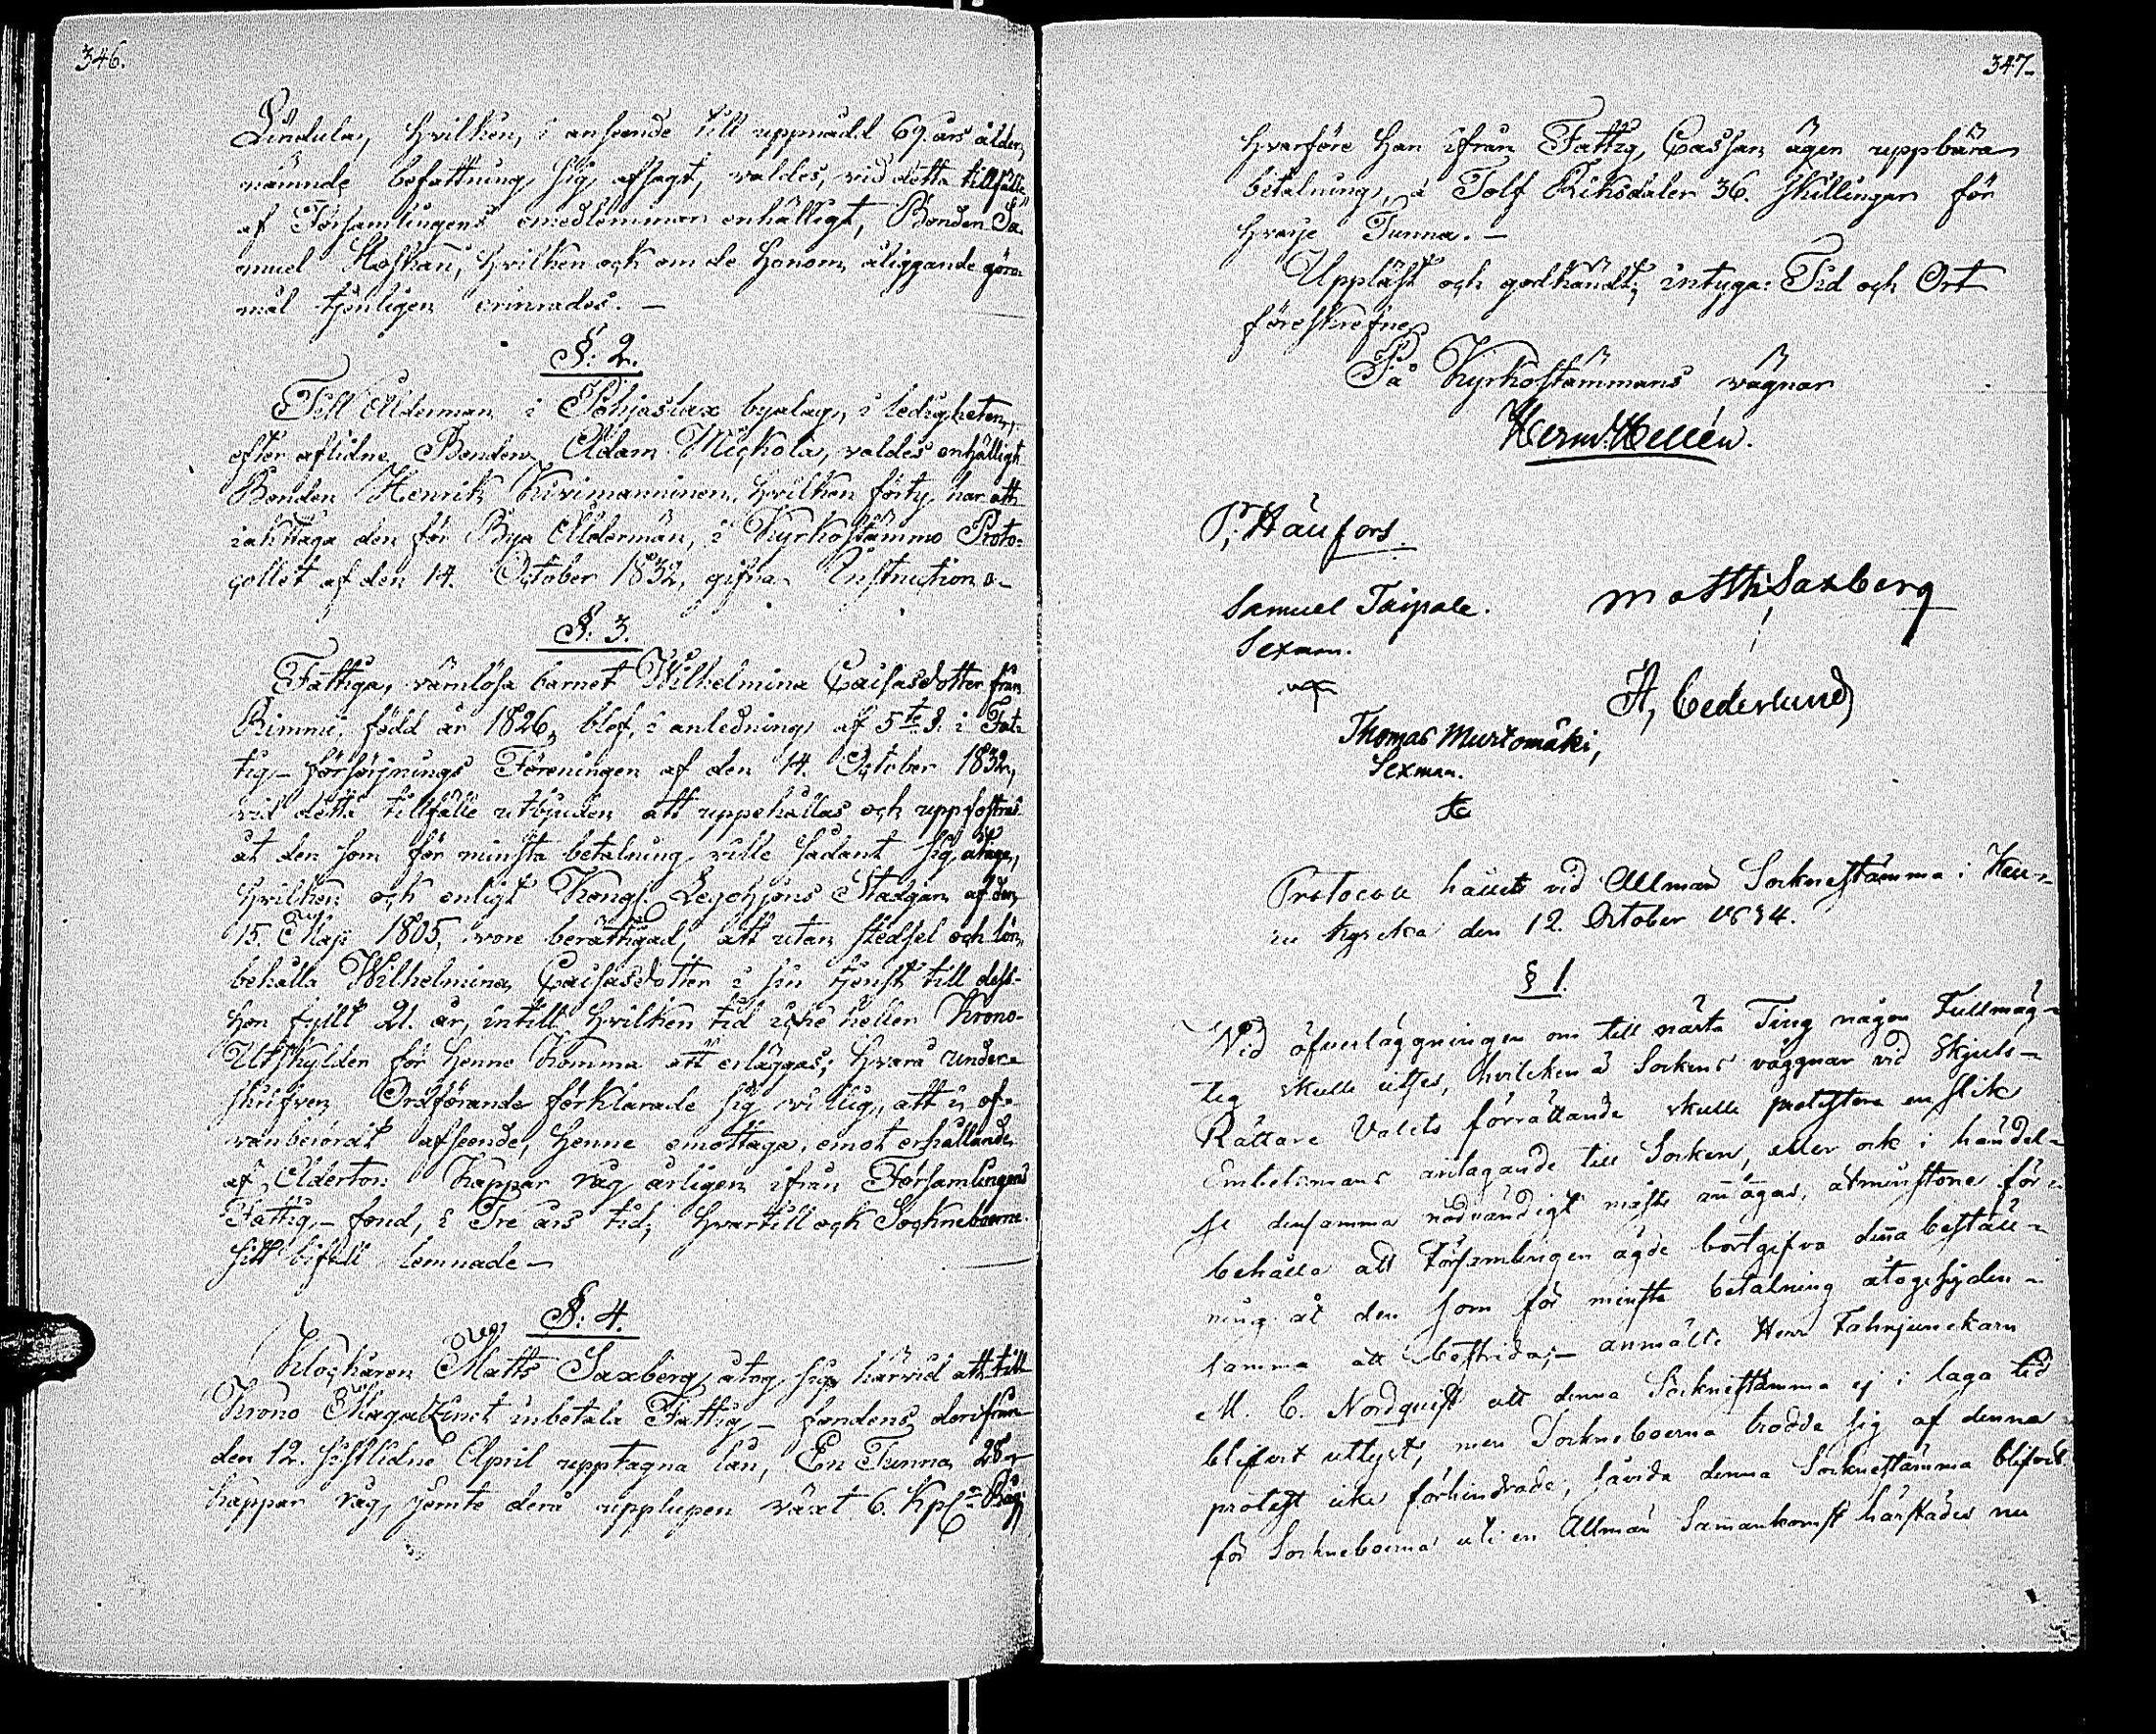 346.
Lindula, hvilken, i anseende till uppnådd 69. års ålder,
nämnde befattning sig afsagt, valdes, vid detta tillfälle,
af Församlingens medlemmar enhälligt, Bonden Sa-
muel Hoskari, hvilken ock om de honom åliggande göro-
mål tjenligen erinrades. –
§. 2.
Till Ålderman i Pohjaslax byalag, i ledigheten,
efter aflidne Bonden Adam Mickola, valdes enhälligt
Bonden Henrik Kivimanninen, hvilken förty har att
iakttaga den för Bya Åldermän, i Kyrkostämmo Proto-
collet af den 14. October 1832, gifna Instruction. –
§. 3.
Fattiga, värnlösa barnet Wilhelmina Caisasdotter från
Rimmi, född år 1826, blef, i anledning af 5te §. i Fat-
tig-försörjnings Föreningen af den 14. October 1832,
vid detta tillfälle utbjuden att uppehållas och uppfostras
åt den som för minsta betalning ville sådant sig åtaga,
hvilken ock enligt Kongl. Legohjons Stadgan af den
15. Maji 1805, vore berättigad, att utan städsel och lön,
behålla Wilhelmina Caisasdotter i sin tjenst till dess
hon fyllt 21. år, intill hvilken tid icke heller Krono-
Utskylder för henne komma att erläggas; hvara under-
skrifven Ordförande förklarade sig villig, att i of-
vanberördt afseende, henne emottaga, emot erhållande
af Aderton Kappar råg årligen ifrån Församlingens
Fattig-fond, i Tre års tid; hvartill ock Socknboerne
sitt bifall lemnade –
§. 4.
Klockaren Matts Saxberg, åtog sig härvid att till
Krono Magatzinet inbetala Fattig-fondens derifrån
den 12. sistlidne April upptagna lån, En Tunna 28
kappar råg, jemte derå upplupen växt 6. Kpr Råg,
347.
hvarföre han ifrån Fattig Cassan äger uppbära
betalning, à Tolf Riksdaler 36. skillingar för
hvarje Tunna. –
Uppläst och godkändt; intyga: Tid och Ort
föreskrefne
På Kyrkostämmans vägnar
Herm. Hellén.
P. Häufors.
Samuel Taipale.
Sexman.
Matth: Saxberg
H, Cederlund
Thomas Murtomäki,
Sexman.
Protocoll hållit vid Allmän Socknestämma i Keu-
ru kyrcka den 12. October 1834.
§ 1.
Vid öfverläggningen om till nästa Ting någon Fullmäg-
tig skulle utses, hvilcken å Sockens väggnar vid Skjuts-
Rättare Valets förrättande skulle protestera en slik
Embetsmans antagande till Socken, eller ock i händel-
se densamma nödvändigt måste antagas, åtminstone för-
behålla att Församlingen ägde bortgifva denna beställ-
ning åt den som för minsta betalning åtoge sig den-
samma att bestrida; – anmälte Herr Fahnjunckarn
M. C. Nordquist att denna Socknestämma ej i laga tid
blifvit utlyst, men Sockneboerna trodde sig af denna
protest icke förhindrade, såvida denna Socknestämma blifvit
för Sockneboerna uti en Allmän Samankomst härstädes nu